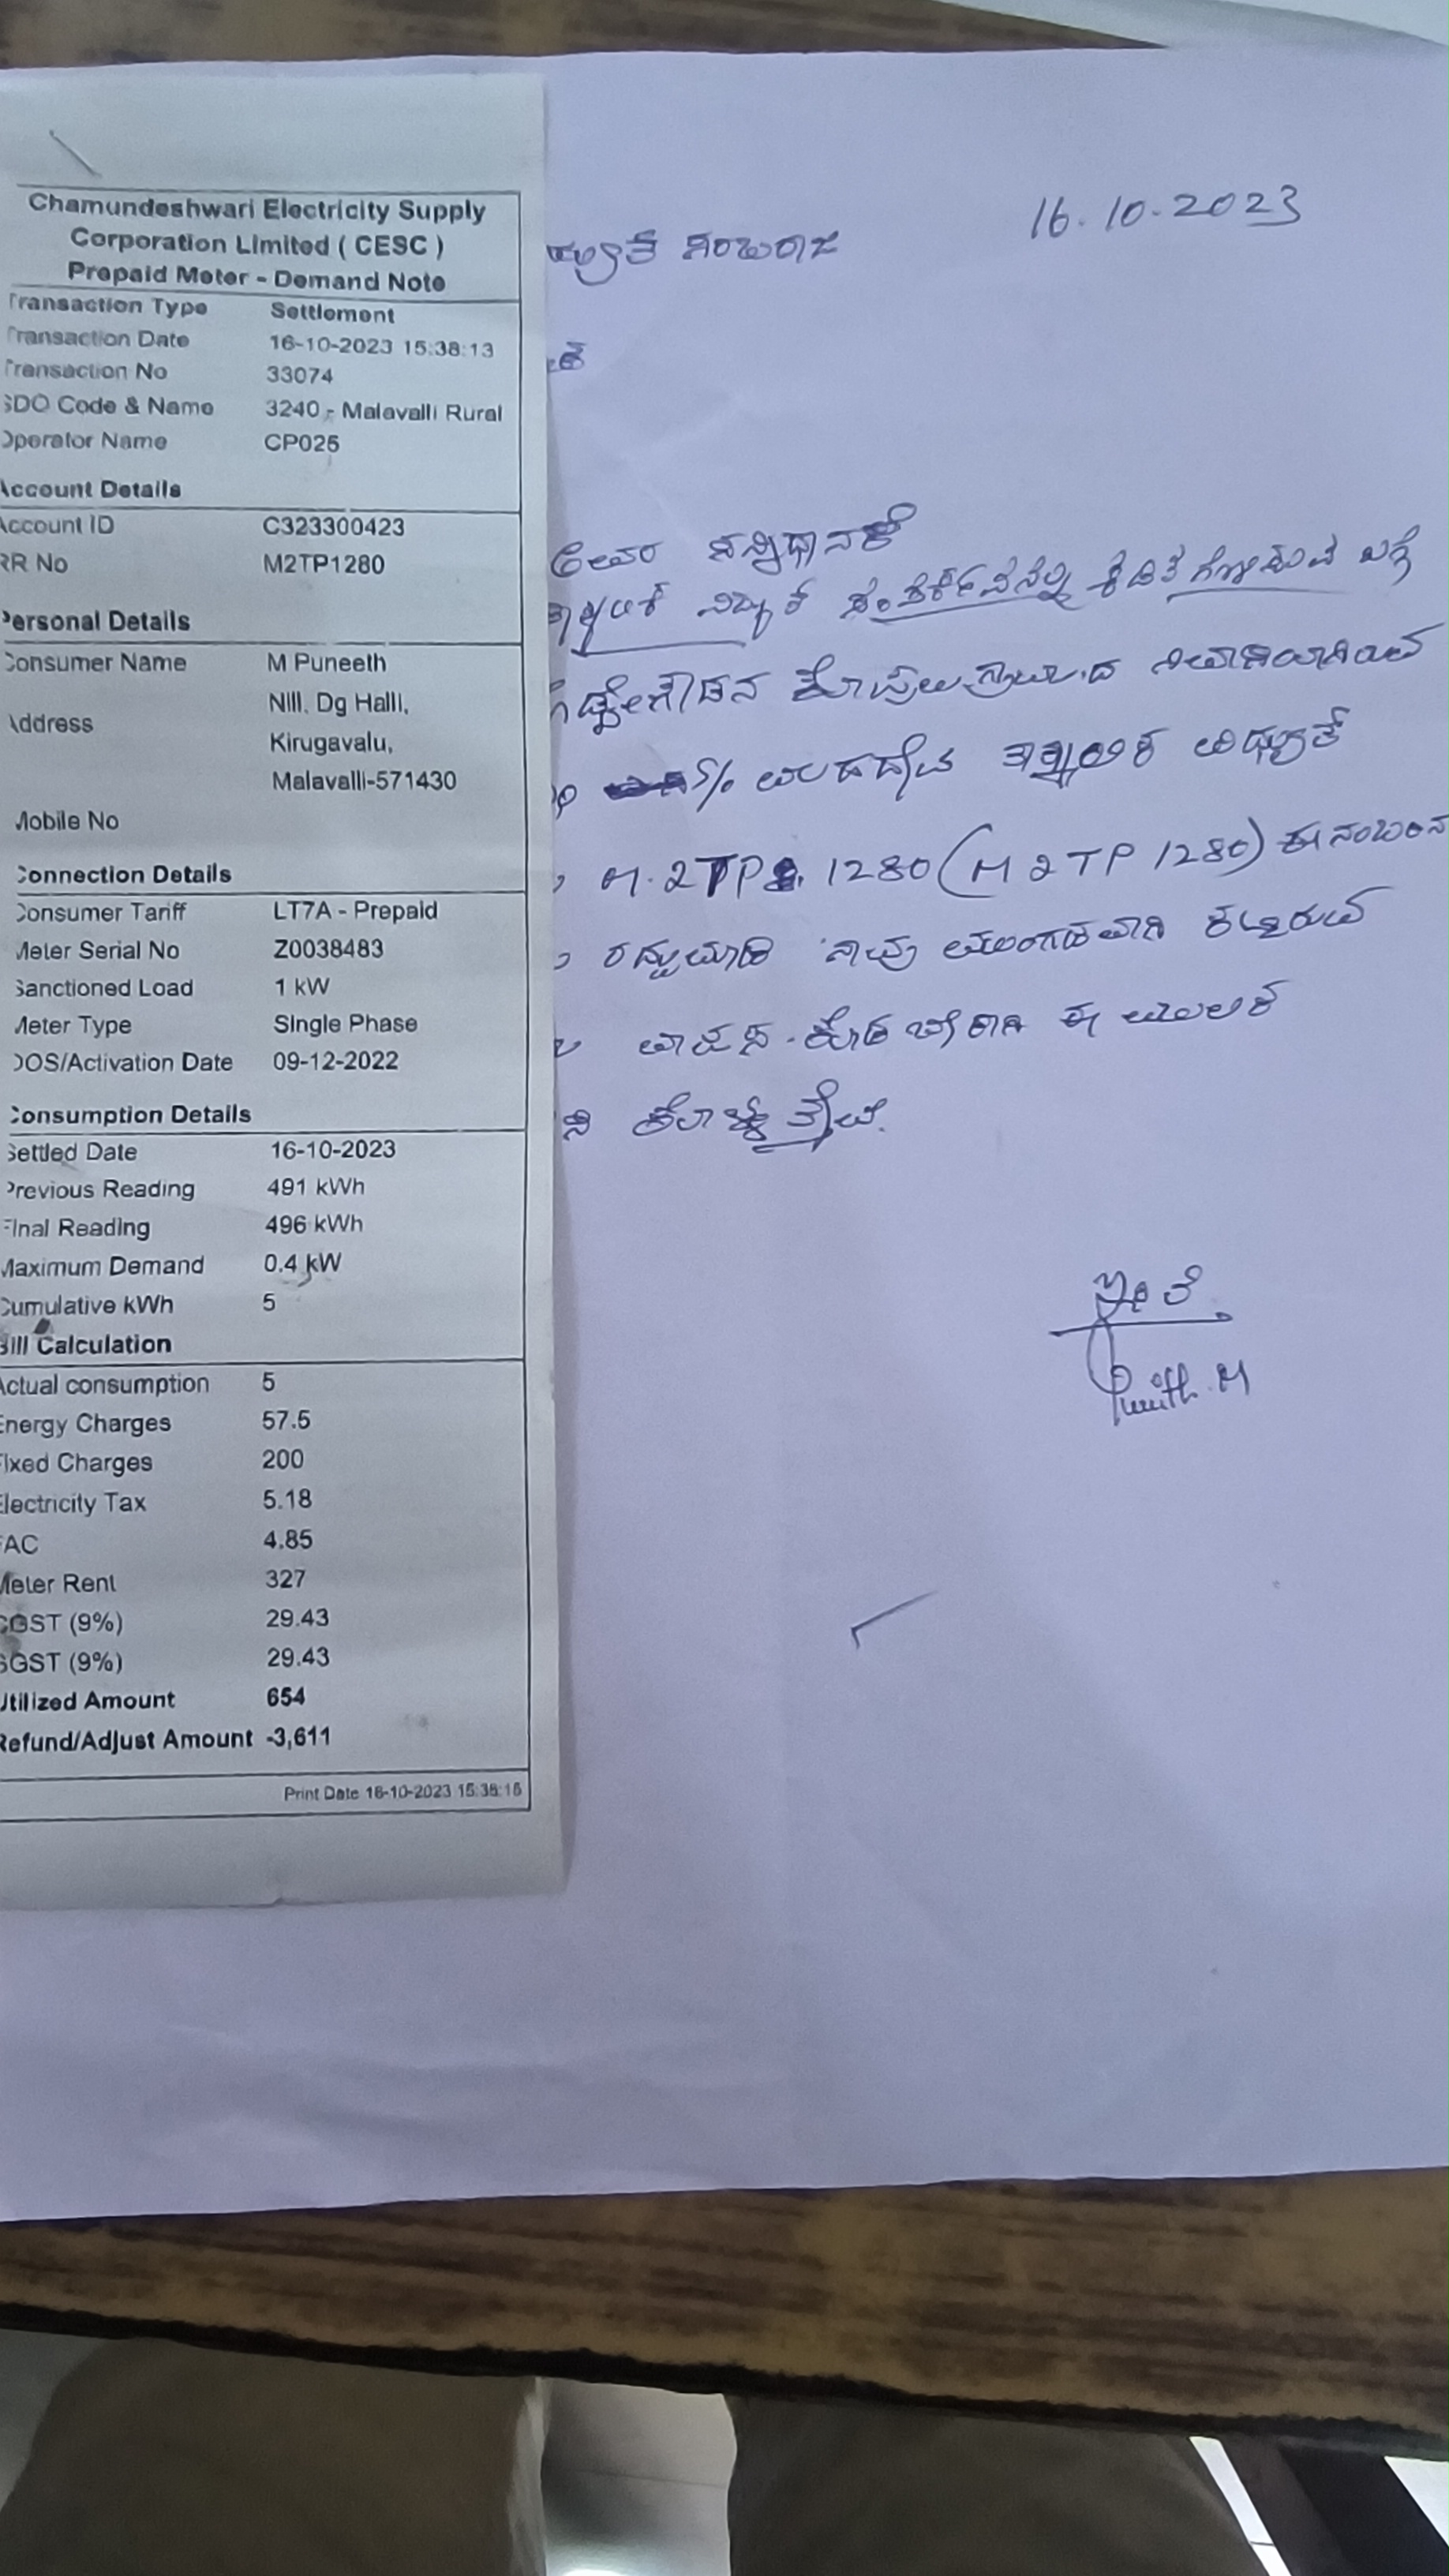 Chamundeshwari Electricity Supply
Corporation Limited ( CESC )
Prepaid Meter - Demand Note
Transaction Type Settlement
Transaction Date 16-10-2023 15:38:13
Transaction No 33074
SDO Code & Name 3240 - Malavalli Rural
Operator Name CP025
Account Details
Account ID C323300423
RR No M2TP1280
Personal Details
Consumer Name M Puneeth
Address Nill, Dg Halli,
Kirugavalu,
Malavalli-571430
Mobile No
Connection Details
Consumer Tariff LT7A - Prepaid
Meter Serial No Z0038483
Sanctioned Load 1 kW
Meter Type Single Phase
DOS/Activation Date 09-12-2022
Consumption Details
Settled Date 16-10-2023
Previous Reading 491 kWh
Final Reading 496 kWh
Maximum Demand 0.4 kW
Cumulative kWh 5
Bill Calculation
Actual consumption 5
Energy Charges 57.5
Fixed Charges 200
Electricity Tax 5.18
FAC 4.85
Meter Rent 327
CGST (9%) 29.43
SGST (9%) 29.43
Utilized Amount 654
Refund/Adjust Amount -3,611
Print Date 16-10-2023 15:38:15
16.10.2023
ಸನ್ನಿಧಾನಕೆ
ಬಗ್ಗೆ
S/o ಮಹದೇವ
M.2TP 1280 (M2TP 1280) ಈ ನಂಬರಿನ
ರದ್ದುಮಾಡಿ ನಾವು ಮುಂಗಡವಾಗಿ ಕಟ್ಟಿರುವ
ವಾಪಸ್ಸು ಈ ಮೂಲಕ
Punith.M